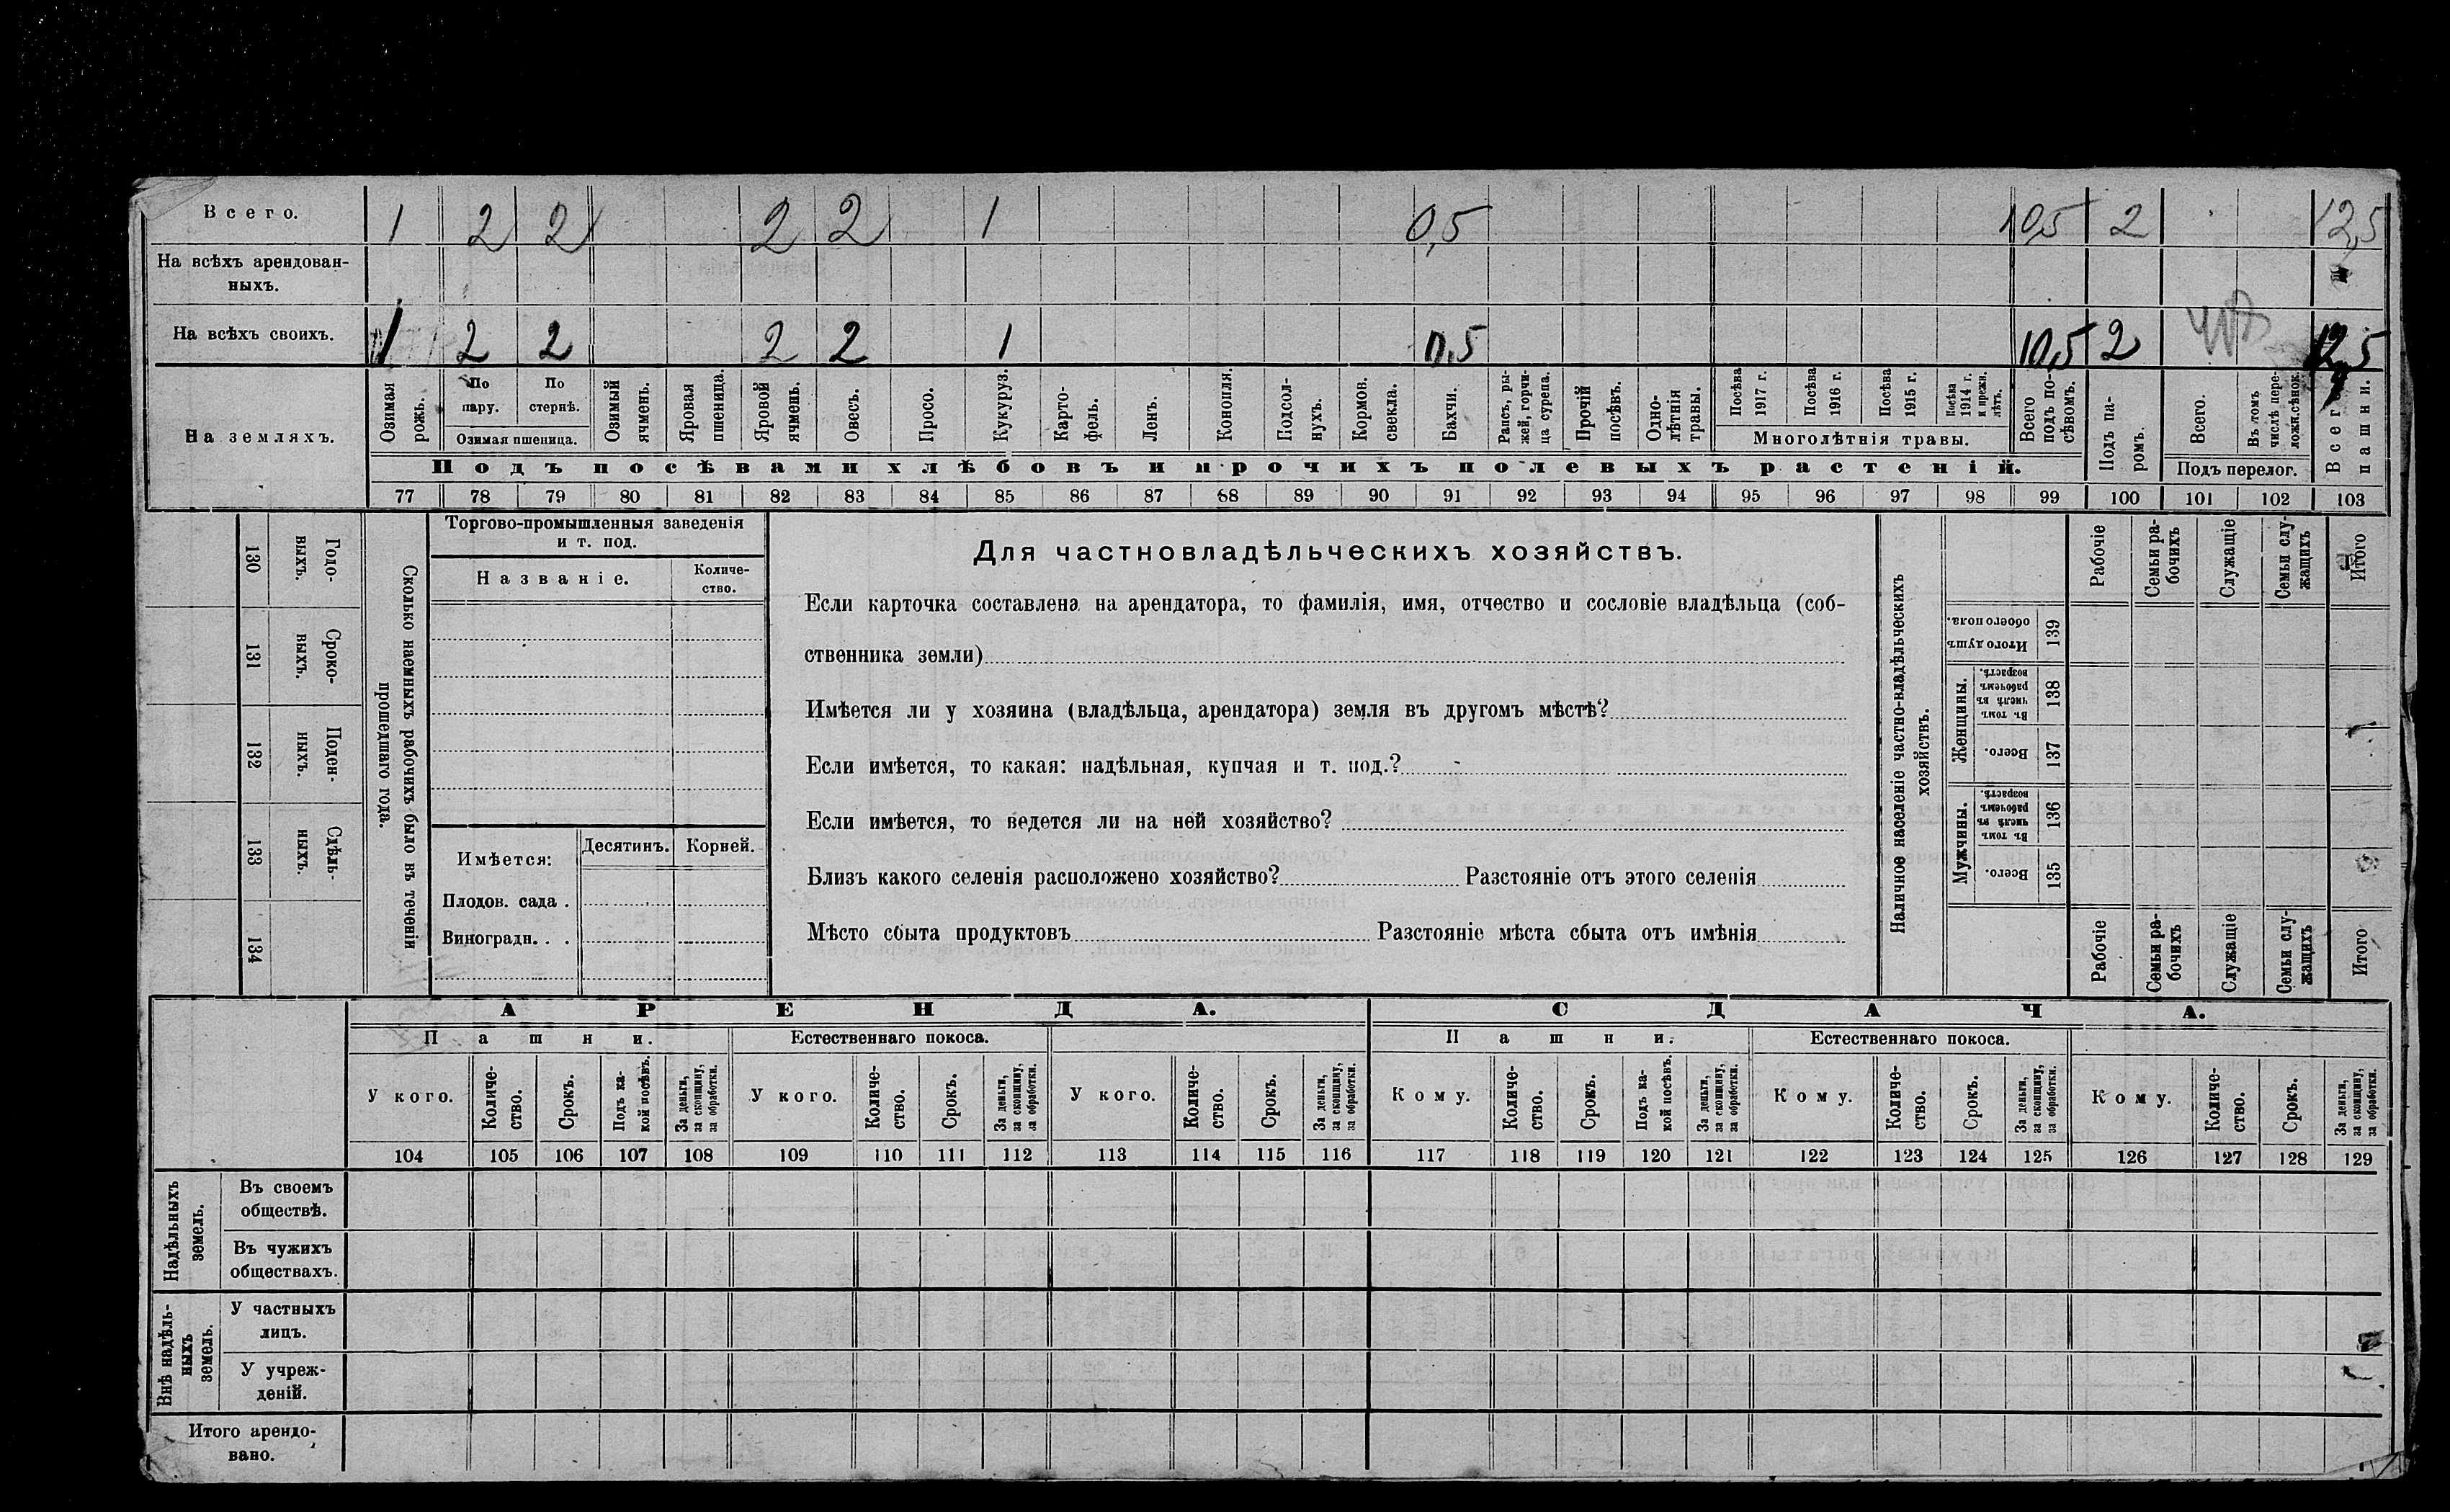 Всего. 1 2 2 2 2 1 0,5 10,5 2 12,5
На всѣхъ арендован-
ныхъ.
На всѣхъ своихъ. 1 2 2 2 2 1 0,5 10,5 2 12,5
На земляхъ.
Озимая рожь.
По пару.
По стернѣ.
Озимая пшеница.
Озимый ячмень.
Яровая пшеница.
Яровой ячмень.
Овесъ.
Просо.
Кукуруз.
Карто-
фель.
Ленъ.
Конопля.
Подсол-
нухъ.
Кормов.
свекла.
Бахчи.
Рапсъ, ры-
жей, горчи-
ца сурепа.
Прочій
посѣвъ.
Одно-
лѣтнія
травы.
Посѣва
1917 г.
Посѣва
1916 г.
Посѣва
1915 г.
Посѣва
1914 г.
и прежн.
лѣтъ.
Многолѣтнія травы.
Всего
подъ по-
сѣвомъ.
Подъ па-
ромъ.
Всего.
Въ томъ
числѣ пере-
ложн.сѣнок.
Подъ перелог.
Всего
пашни.
Подъ посѣвами хлѣбовъ и прочихъ полевыхъ растеній.
77 78 79 80 81 82 83 84 85 86 87 88 89 90 91 92 93 94 95 96 97 98 99 100 101 102 103
130 Годо-
выхъ.
131 Сроко-
выхъ.
132 Поден-
ныхъ.
133 Сдѣль-
ныхъ.
134
Сколько наемныхъ рабочихъ было въ теченіи
прошедшаго года.
Торгово-промышленныя заведенія
и т. под.
Названіе.
Количе-
ство.
Имѣется:
Десятинъ.
Корней.
Плодов. сада .
Виноградн. . .
Для частновладѣльческихъ хозяйствъ.
Если карточка составлена на арендатора, то фамилія, имя, отчество и сословіе владѣльца (соб-
ственника земли)
Имѣется ли у хозяина (владѣльца, арендатора) земля въ другомъ мѣстѣ?
Если имѣется, то какая: надѣльная, купчая и т. под.?
Если имѣется, то ведется ли на ней хозяйство?
Близъ какого селенія расположено хозяйство? Разстояніе отъ этого селенія
Мѣсто сбыта продуктовъ Разстояніе мѣста сбыта отъ имѣнія
Наличное населеніе частно-владѣльческихъ
хозяйствъ.
Рабочіе
Семьи ра-
бочихъ
Служащіе
Семьи слу-
жащихъ
Итого
Итого душъ
обоего пола.
139
Женщины.
Въ томъ
числѣ въ
рабочемъ
возрастѣ.
138
Всего.
137
Мужчины.
Въ томъ
числѣ въ
рабочемъ
возрастѣ.
136
Всего.
135
Рабочіе
Семьи ра-
бочихъ
Служащіе
Семьи слу-
жащихъ
Итого
АРЕНДА. СДАЧА.
Пашни. Естественнаго покоса. Пашни. Естественнаго покоса.
У кого.
Количе-
ство.
Срокъ.
Подъ ка-
кой посѣвъ.
За деньги,
за скопщину,
за обработки.
У кого.
Количе-
ство.
Срокъ.
За деньги,
за скопщину,
за обработки.
У кого.
Количе-
ство.
Срокъ.
За деньги,
за скопщину,
за обработки.
Кому.
Количе-
ство.
Срокъ.
Подъ ка-
кой посѣвъ.
За деньги,
за скопщину,
за обработки.
Кому.
Количе-
ство.
Срокъ.
За деньги,
за скопщину,
за обработки.
Кому.
Количе-
ство.
Срокъ.
За деньги,
за скопщину,
за обработки.
104 105 106 107 108 109 110 111 112 113 114 115 116 117 118 119 120 121 122 123 124 125 126 127 128 129
Надѣльныхъ
земель.
Въ своемъ
обществѣ.
Въ чужихъ
обществахъ.
Внѣ надѣль-
ныхъ
земель.
У частныхъ
лицъ.
У учреж-
деній.
Итого арендо-
вано.